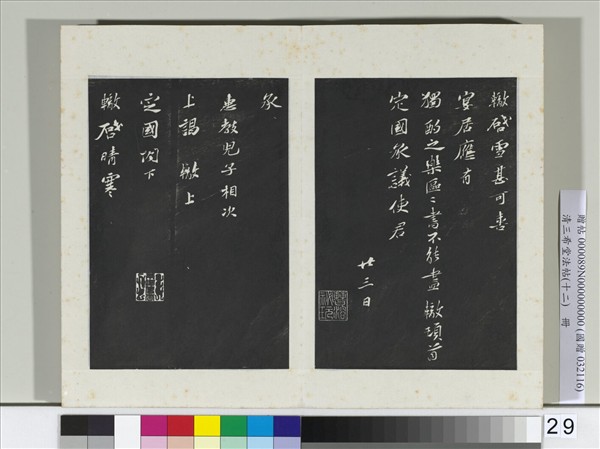 轍啓雪甚可喜
宴居應有
獨酌之樂區區書不能盡轍頓首
定國承議使君
廿三日
承
惠教兒子相次
上謁 轍上
定國閣下
轍啓晴寒
贈帖 000089N000000000 (國贈 032116)
清三希堂法帖(十二) 冊
29